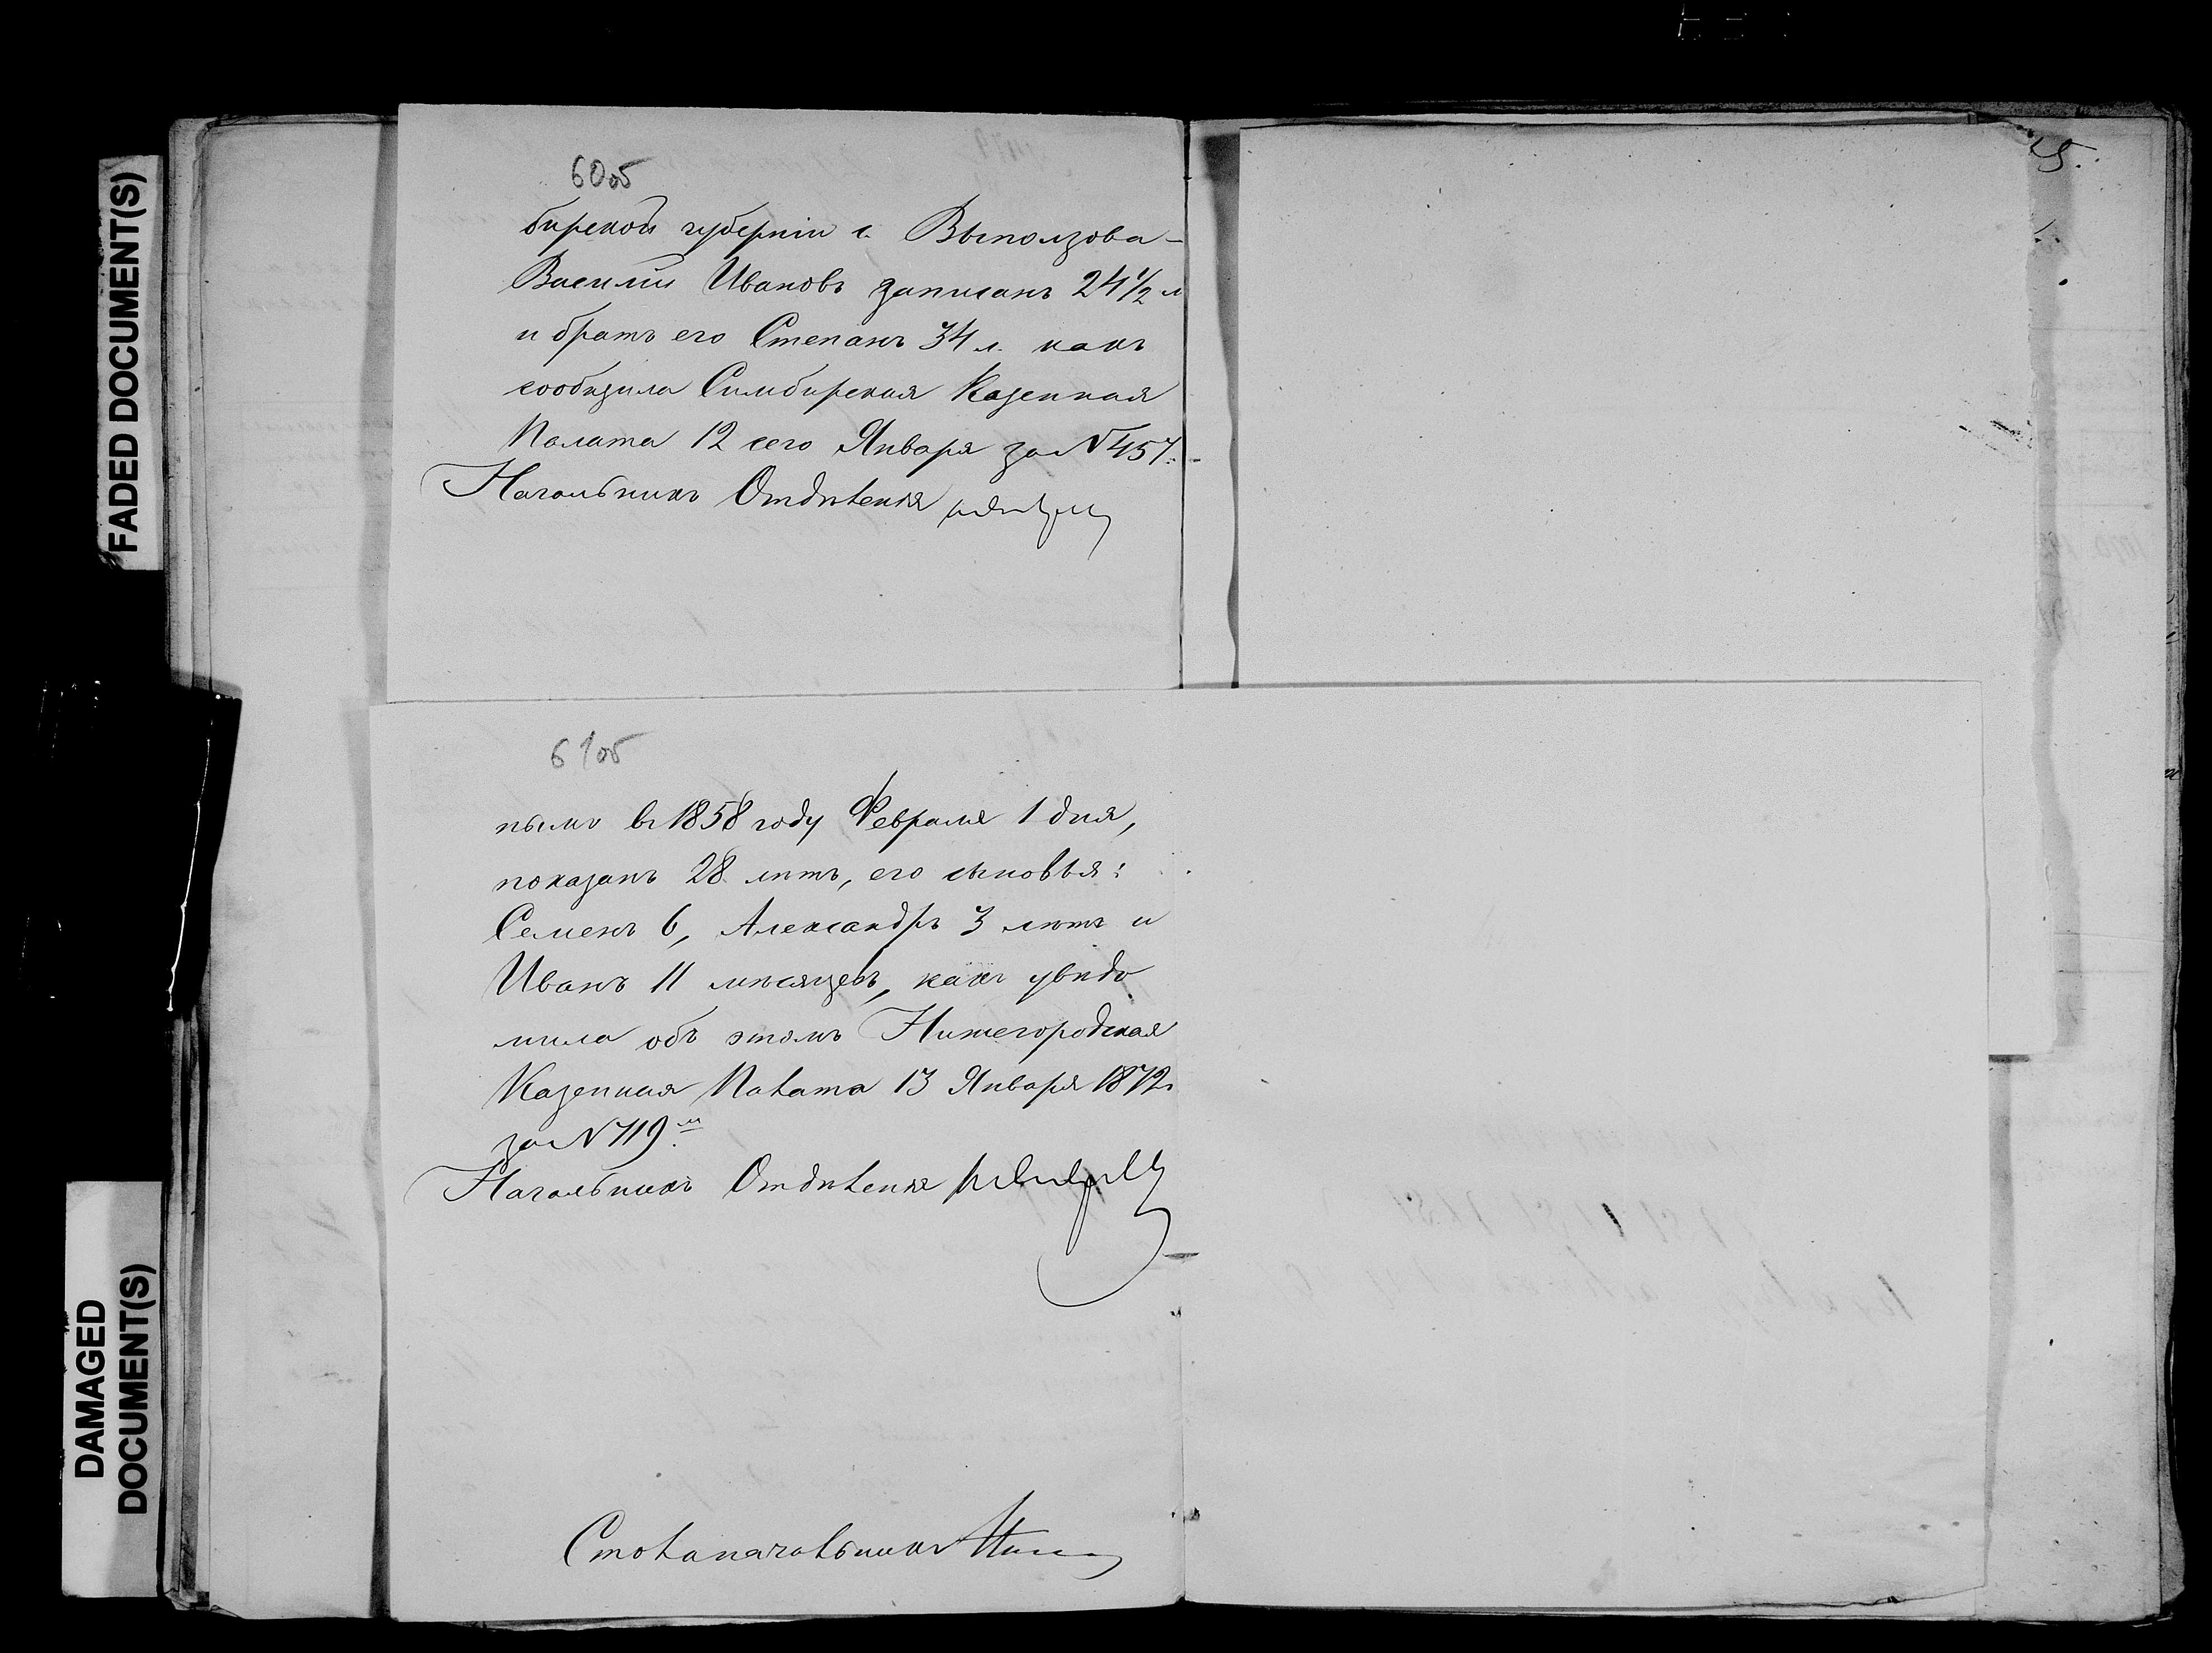 FADED DOCUMENT(S)
DAMAGED
DOCUMENT(S)
60об
бирской губерніи с. Выползова-
Василій Ивановъ записанъ 24 1/2 л
и братъ его Степанъ 34 л. какъ
сообщила Симбирская Казенная
Палата 12 сего Января за № 457.
Начальникъ Отдѣленія
61об
нымъ въ 1858 году Февраля 1 дня,
показанъ 28 лѣтъ, его сыновья:
Семенъ 6, Александръ 3 лѣтъ и
Иванъ 11 мѣсяцевъ, какъ увѣдо
мила объ этомъ Нижегородская
Казенная Палата 13 Января 1872г.
за № 119.м
Начальникъ Отдѣленія
Столоначальникъ